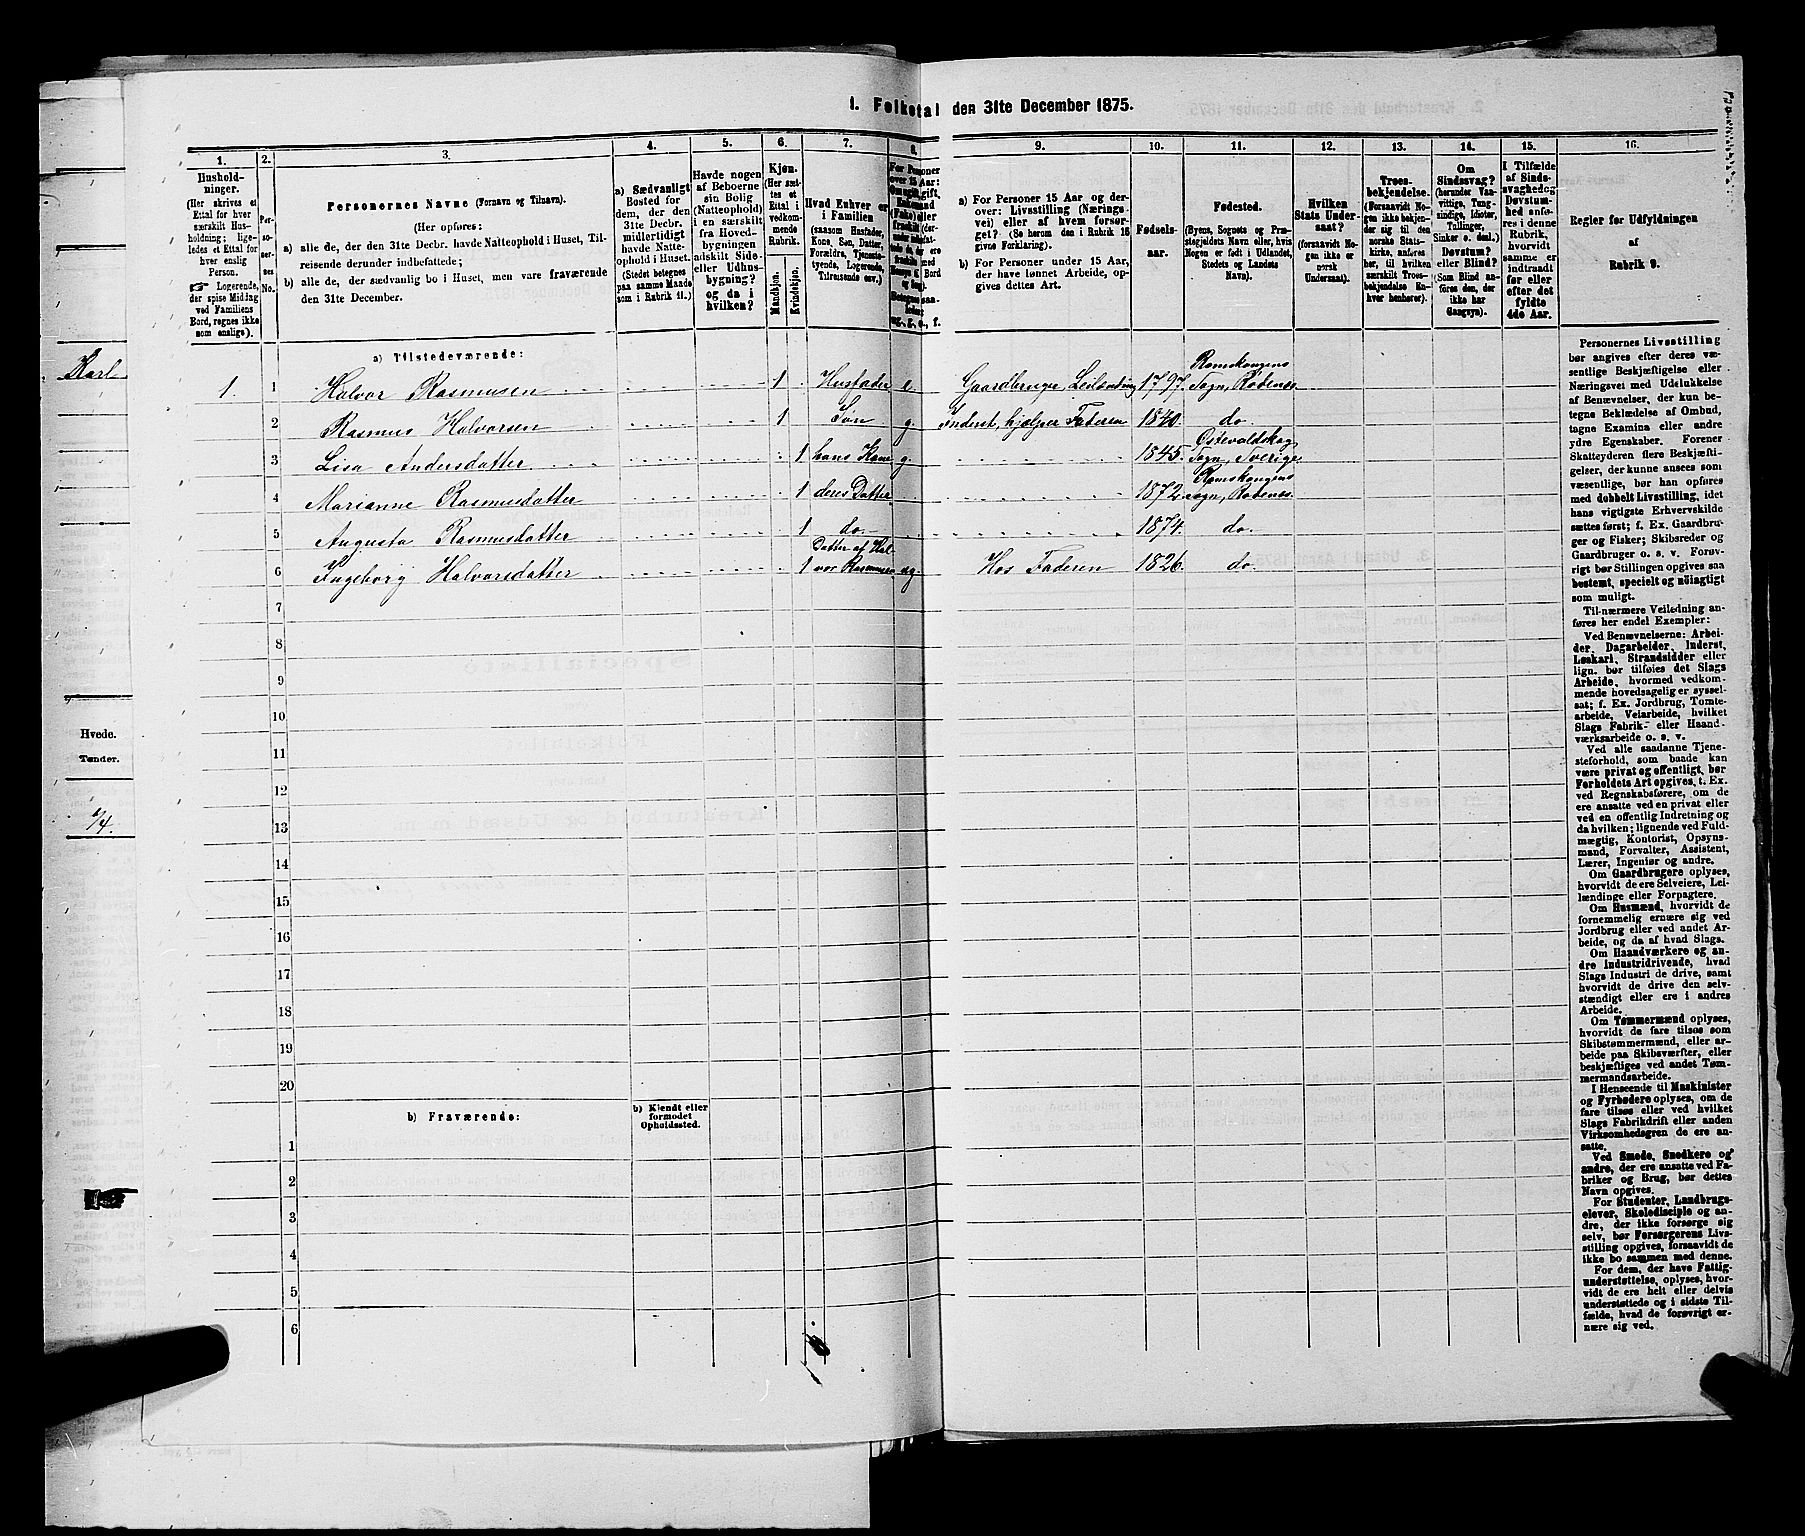 1. Folketal den 31te December 1875.
1.
2.
3.
4.
5.
6.
7.
8.
9.
10.
11.
12.
13.
14.
15.
16.
Hushold-
ninger.
(Her skrives et
Ettal for hver
særskilt Hus-
holdning; lige-
ledes et Ettal for
hver enslig
Person.
☞ Logerende,
der spise Middag
ved Familiens
Bord, regnes ikke
som enslige).
Per-
so-
ner-
nes
No.
Personernes Navne (Fornavn og Tilnavn).
(Her opføres:
a) alle de, der den 31te Decbr. havde Natteophold i Huset, Til-
reisende derunder indbefattede;
b) alle de, der sædvanlig bo i Huset, men vare fraværende
den 31te December.
a) Sædvanligt
Bosted for
dem, der den
31te Decbr.
midlertidigt
havde Natte-
ophold i Huset.
(Stedet betegnes
paa samme Maade
som i Rubrik 11.)
Havde nogen
af Beboerne
sin Bolig
(Natteophold)
i en særskilt
fra Hoved-
bygningen
adskilt Side-
eller Udhus-
bygning?
og da i
hvilken?
Kjøn.
(Her sæt-
tes et
Ettal i
vedkom-
mende
Rubrik.
Mandkjøn.
Kvindekjøn.
Hvad Enhver er
i Familien
(saasom Husfader,
Kone, Søn, Datter,
Forældre, Tjeneste-
tyende, Logerende,
Tilreisende osv.)
For Personer
over 15 Aar:
a) For Personer 15 Aar og der-
over: Livsstilling (Nærings-
vei) eller af hvem forsør-
get? (Se herom den i Rubrik 16
givne Forklaring).
b) For Personer under 15 Aar,
der have lønnet Arbeide, op-
gives dettes Art.
Fødsels-
aar.
Fødested.
(Byens, Sognets og Præ-
stegjeldets Navn eller, hvis
Nogen er født i Udlandet,
Stedets og Landets
Navn).
Hvilken
Stats Under-
saat?
(forsaavidt No-
gen ikke er
norsk
Undersaat).
Troes-
bekjendelse.
(Forsaavidt No-
gen ikke bekjen-
der sig til den
norske Stats-
kirke, anføres
her, til hvilken
særskilt Troes-
bekjendelse En-
hver henhører).
Om
Sindssvag?
(herunder Van-
vittige, Tung-
sindige, Idioter,
Tullinger,
Sinker o. desl.)
Døvstum?
eller Blind?
(Som Blind an-
føres den, der
ikke har
Gangsyn).
I Tilfælde
af Sinds-
svaghed og
Døvstum-
hed anfø-
res i denne
Rubrik,
hvorvidt
samme er
indtraadt
før eller
efter det
fyldte
4de Aar.
Regler for Udfyldningen
af
Rubrik 9.
a) Tilstedeværende:
1. 1 Halvor Rasmusen 1 Husfader e. Gaardbruger, Leilending 1797. Romskougens Sogn, Rødenes
2 Rasmus Halvorsen 1 Søn g. Inderst, hjælper Faderen 1840. do.
3 Lisa Andersdatter 1 hans Kone g. 1845. Ostevaldskog Sogn, Sverige
4 Marianne Rasmusdatter 1 deres Datter 1872. Romskougens Sogn, Rødenes.
5 Augusta Rasmusdatter 1 do. 1874. do.
6 Ingeborg Halvorsdatter 1 Datter af Hal-
vor Rasmusen ug. Hos Faderen 1826. do.
7
8
9
10
11
12
13
14
15
16
17
18
19
20
b) Fraværende:
b) Kjendt eller
formodet
Opholdssted.
1
2
3
4
5
6
Personernes Livsstilling
bør angives efter deres væ-
sentlige Beskjæftigelse eller
Næringsvei med Udelukkelse
af Benævnelser, der kun be-
tegne Beklædelse af Ombud,
tagne Examina eller andre
ydre Egenskaber. Forener
Skatteyderen flere Beskjæfti-
gelser, der kunne ansees som
væsentlige, bør han opføres
med dobbelt Livsstilling, idet
hans vigtigste Erhvervskilde
sættes først; f. Ex. Gaardbru-
ger og Fisker; Skibsreder og
Gaardbruger o. s. v. Forøv-
rigt bør Stillingen opgives saa
bestemt, specielt og nøiagtigt
som muligt.
Til nærmere Veiledning an-
føres her endel Exempler:
Ved Benævnelserne: Arbei-
der, Dagarbeider, Inderst,
Løskarl, Strandsidder eller
lign. bør tilføies det Slags
Arbeide, hvormed vedkom-
mende hovedsagelig er syssel-
sat; f. Ex. Jordbrug, Tomte-
arbeide, Veiarbeide, hvilket
Slags Fabrik- eller Haand-
værksarbeide o. s. v.
Ved alle saadanne Tjene-
steforhold, som baade kan
være privat og offentligt, bør
Forholdets Art opgives, t. Ex.
ved Regnskabsførere, om de
ere ansatte ved en privat eller
ved en offentlig Indretning og
da hvilken; lignende ved Fuld-
mægtig, Kontorist, Opsyns-
mand, Forvalter, Assistent,
Lærer, Ingeniør og andre.
Om Gaardbrugere oplyses,
hvorvidt de ere Selveiere, Lei-
lændinge eller Forpagtere.
Om Husmænd, hvorvidt de
fornemmelig ernære sig ved
Jordbrug eller ved andet Ar-
beide, og da af hvad Slags.
Om Haandværkere og an-
dre Industridrivende, hvad
Slags Industri de drive, samt
hvorvidt de drive den selv-
stændigt eller ere i andres
Arbeide.
Om Tømmermænd oplyses,
hvorvidt de fare tilsøs som
Skibstømmermænd, eller ar-
beide paa Skibsværfter, eller
beskjæftiges ved andet Tøm-
mermandsarbeide.
I Henseende til Maskinister
og Fyrbødere oplyses, om de
fare tilsøs eller ved hvilket
Slags Fabrikdrift eller anden
Virksomhedsgren de ere an-
satte.
Ved Smede, Snedkere og
andre, der ere ansatte ved Fa-
briker og Brug, bør dettes
Navn opgives.
For Studenter, Landbrugs-
elever, Skoledisciple og an-
dre, der ikke forsørge sig
selv, bør Forsørgerens Livs-
stilling opgives, forsaavidt de
ikke bo sammen med denne.
For dem, der have Fattig-
understøttelse, oplyses, hvor-
vidt de ere helt eller delvis
understøttede og i sidste Til-
fælde, hvad de forøvrigt er-
nære sig ved.
Karl
Hvede.
Tønder.
1/4.